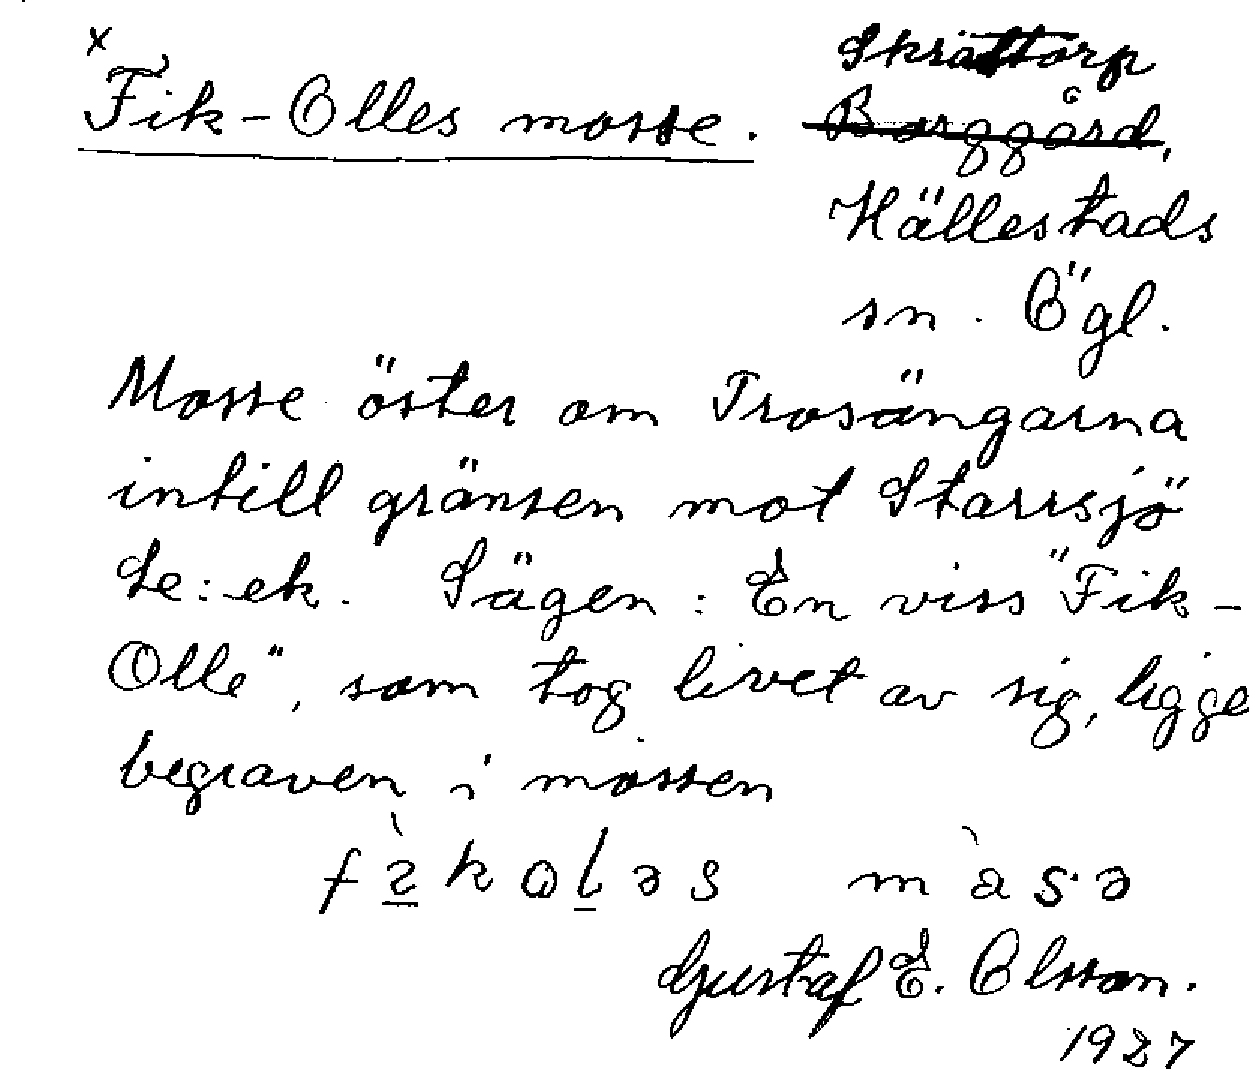 x
Fik-Olles mosse. Skrattorp
Borggård,
Hällestads
sn. Ögl.
Mosse öster om Trosängarna
intill gränsen mot Starrsjö
Se: ek. Sägen: En viss "Fik-
Olle", som tog livet av sig, ligge
begraven i mossen
Gustaf E. Olsson.
1927